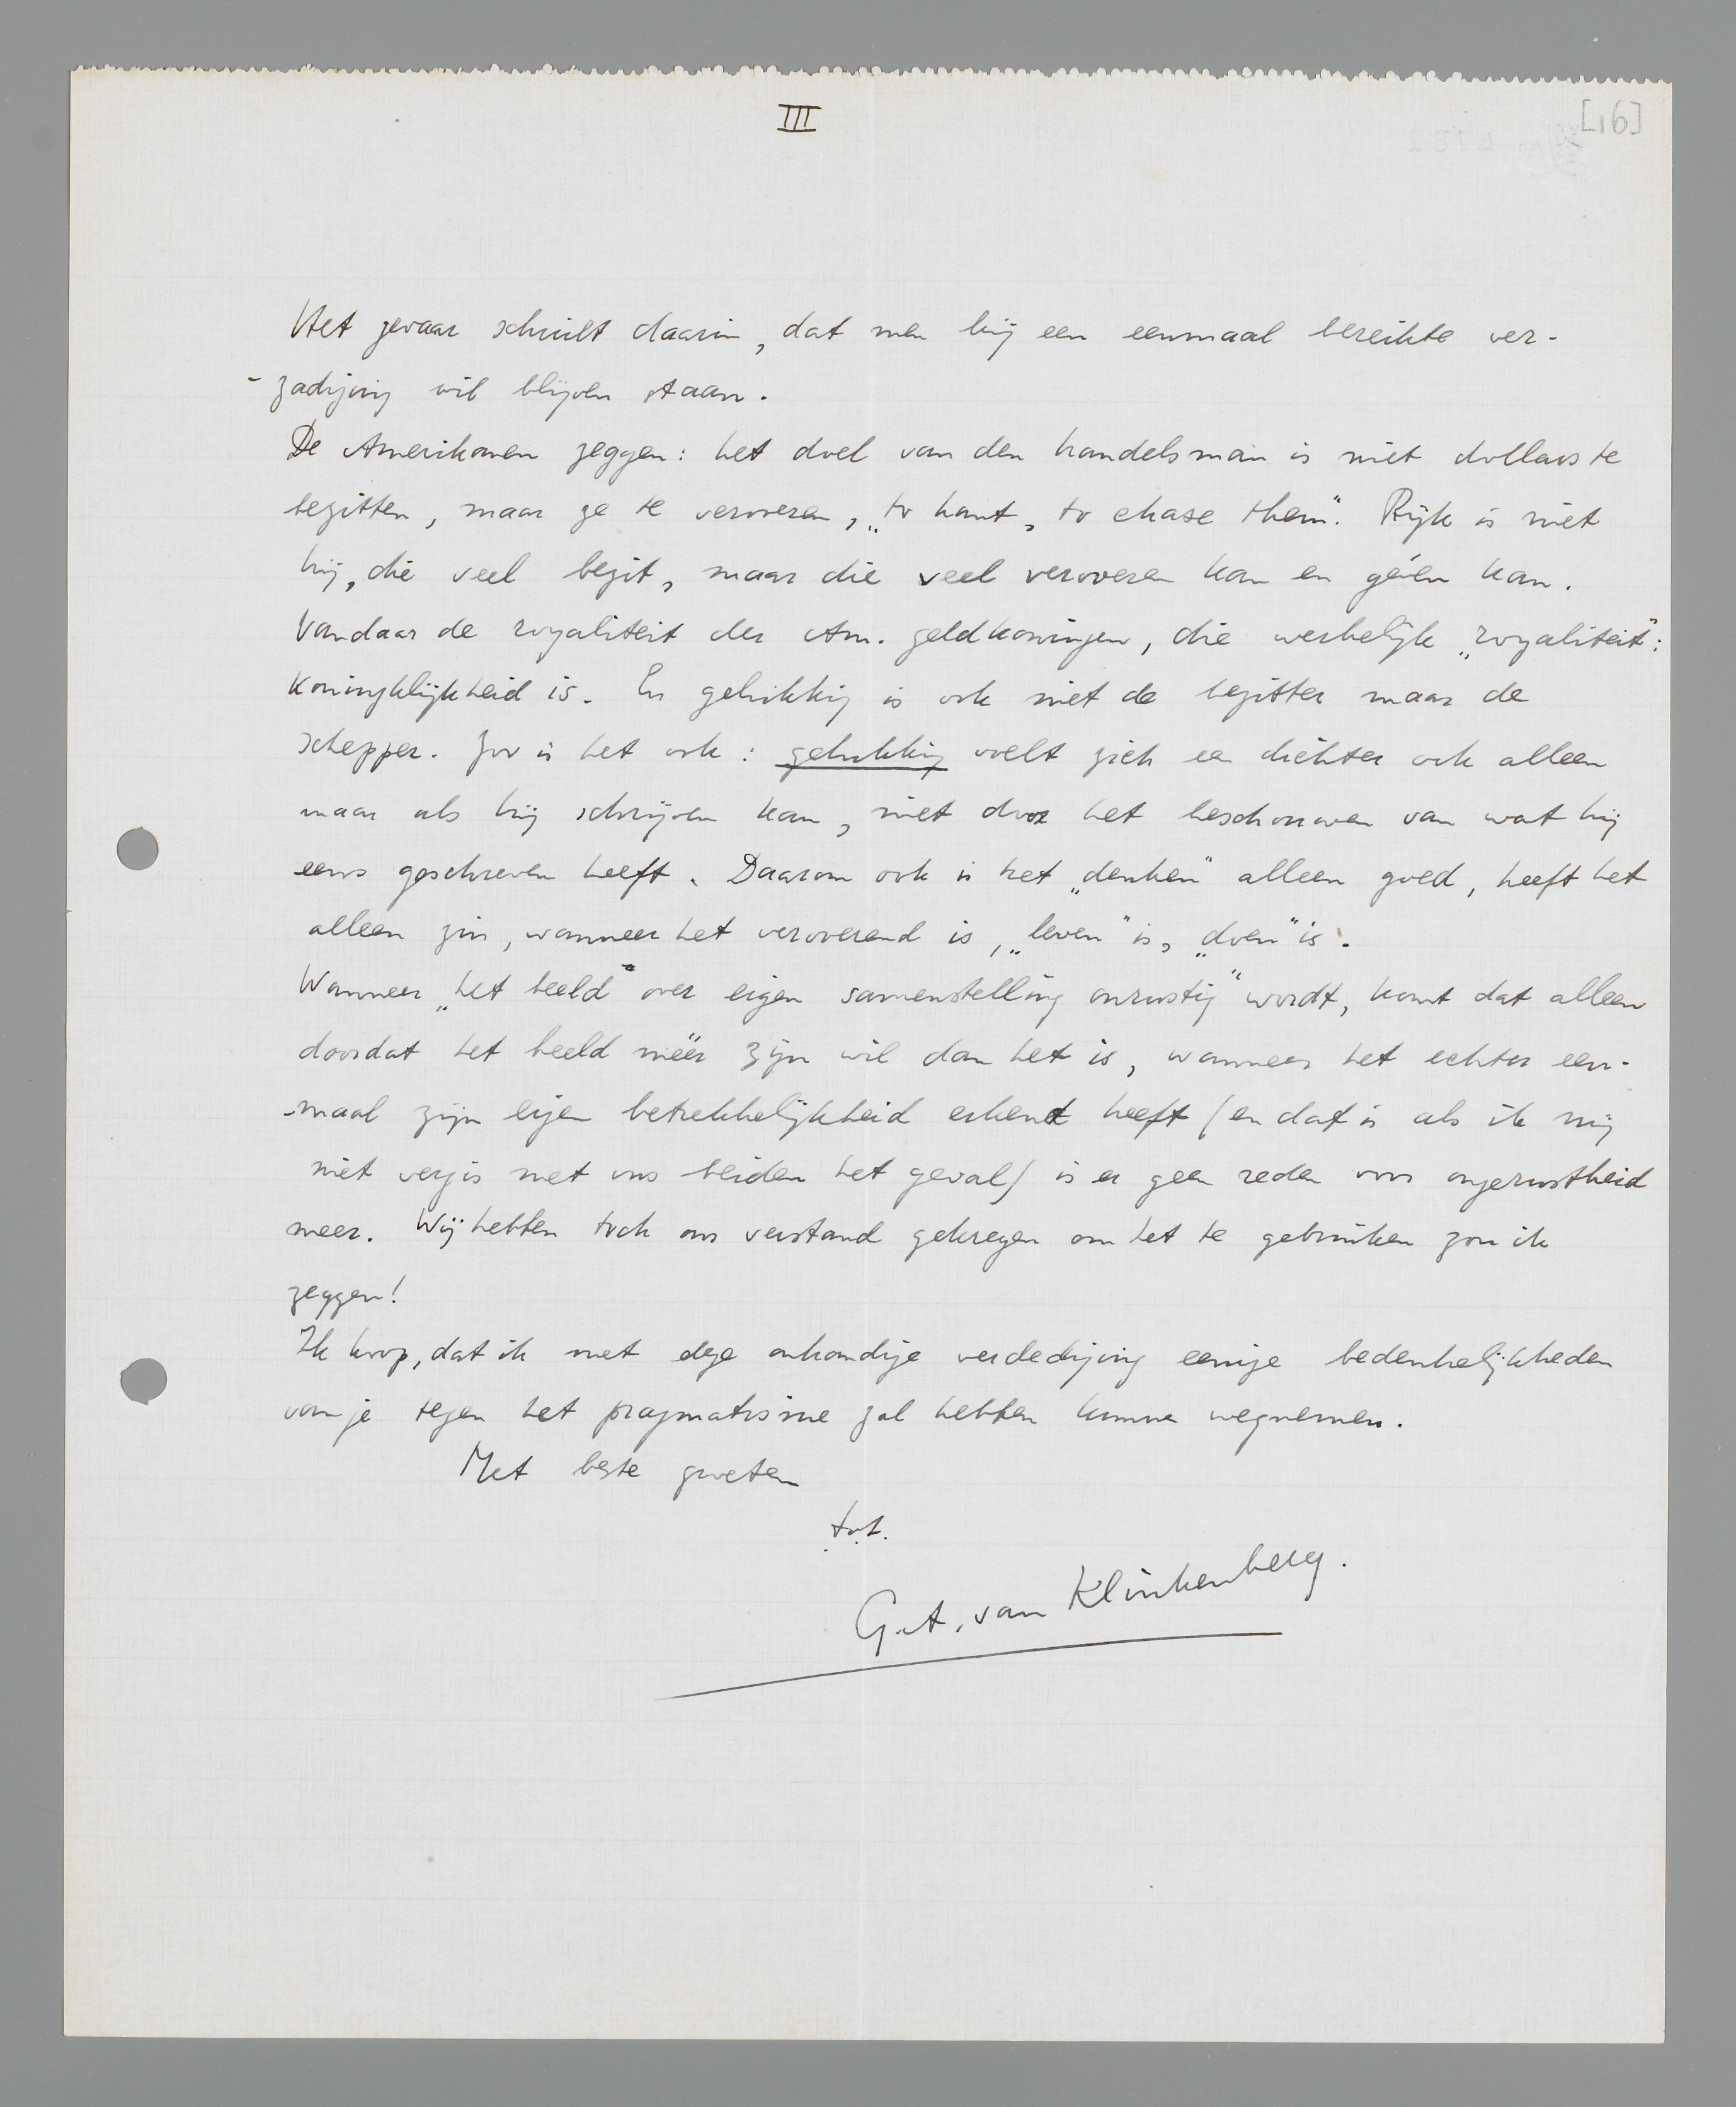 III
[16]
Het gevaar schuilt daarin, dat men bij een eenmaal bereikte ver-
-zadiging wil blijven staan.
De Amerikanen zeggen: het doel van den handelsman is niet dollars te
bezitten, maar ze te veroveren, „to hunt, to chase them”. Rijk is niet
hij, die veel bezit, maar die veel veroveren kan en géven kan.
Vandaar de royaliteit der Am. geldkoningen, die werkelijk „royaliteit”:
koninklijkheid is. En gelukkig is ook niet de bezitter maar de
schepper. Zoo is het ook: gelukkig voelt zich een dichter ook alleen
maar als hij schrijven kan, niet door het beschouwen van wat hij
eens geschreven heeft. Daarom ook is het „denken” alleen goed, heeft het
alleen zin, wanneer het veroverend is, „leven” is, „doen” is.
Wanneer „het beeld over eigen samenstelling onrustig” wordt, komt dat alleen
doordat het beeld méér zijn wil dan het is, wanneer het echter een-
-maal zijn eigen betrekkelijkheid erkend heeft (en dat is als ik mij
niet vergis met ons beiden het geval) is er geen reden voor ongerustheid
meer. Wij hebben toch ons verstand gekregen om het te gebruiken zou ik
zeggen!
Ik hoop, dat ik met deze onhandige verdediging eenige bedenkelijkheden
van je tegen het pragmatisme zal hebben kunnen wegnemen.
Met beste groeten
t.t.
G.A. van Klinkenberg.